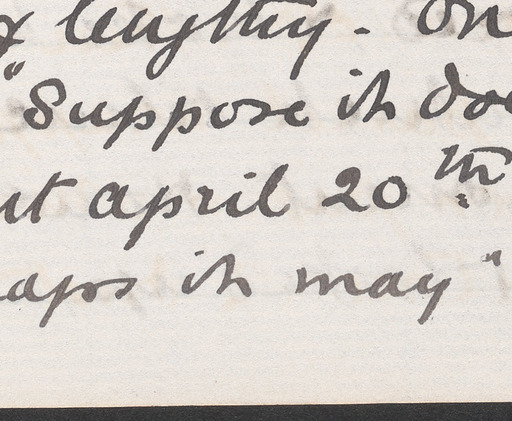 & lengthy - On
"Suppose it doe
ut april 20th
aps it may"